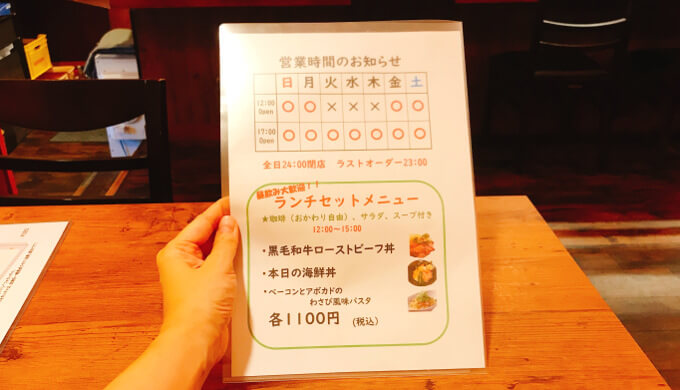 営業時間のお知らせ
日 月 火 水 木 金 土
12:00 Open ○ ○ × × × ○ ○
17:00 Open ○ ○ ○ ○ ○ ○ ○
全日24:00閉店 ラストオーダー23:00
昼飲み大歓迎！！
ランチセットメニュー
★珈琲（おかわり自由）、サラダ、スープ付き
12:00～15:00
・黒毛和牛ローストビーフ丼
・本日の海鮮丼
・ベーコンとアボカドの
わさび風味パスタ
各1100円 (税込)